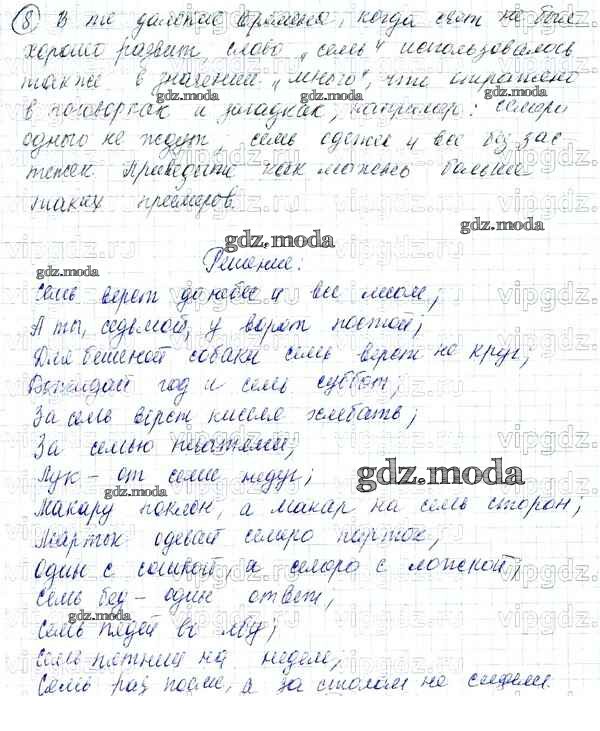 8) В те далекие времена, когда счет не был
хорошо развит, слово "семь" использовалось
также в значении "много", что отражено
в поговорках и загадках, например: семеро
одного не ждут, семь одежек и все без зас
тежек. Приведите как можно больше
таких примеров.
Решение:
Семь верст до небес и все лесом;
А ты, седьмой, у ворот постой;
Для бешеной собаки семь верст не круг;
Выжидай год и семь суббот;
За семь верст киселя хлебать;
За семью печатями;
Лук - от семи недуг;
Макару поклон, а Макар на семь сторон;
Мартык одевай семеро порток;
Один с сошкой, а семеро с ложкой;
Семь бед - один ответ;
Семь пядей во лбу;
Семь пятниц на неделе;
Семь раз поели, а за столом не сидели.
gdz.moda
vipgdz.ru